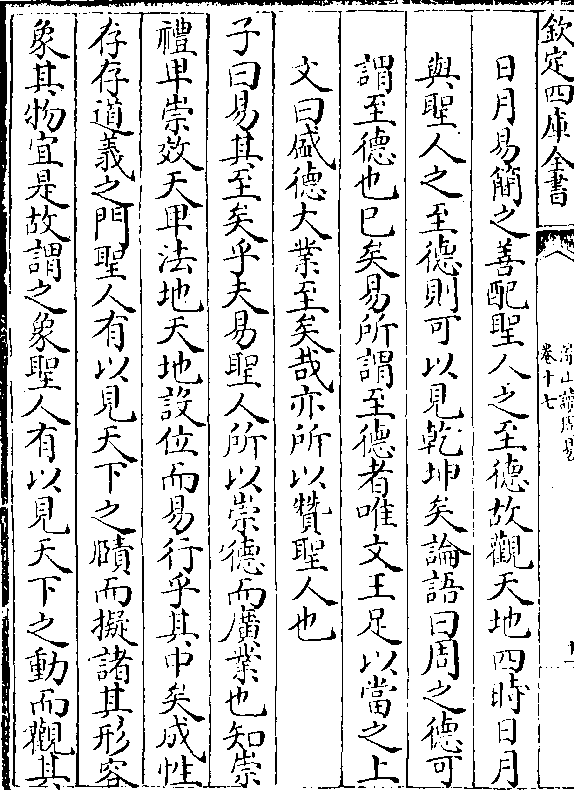 欽定四庫全書
卷十七
日月易簡之善配聖人之至德故觀天地四時日月
與聖人之至德則可以見乾坤矣論語曰周之德可
謂至德也已矣易所謂至德者唯文王足以當之上
文曰盛德大業至矣哉亦所以贊聖人也
子曰易其至矣乎夫易聖人所以崇德而廣業也知崇
禮卑崇效天卑法地天地設位而易行乎其中矣成性
存存道義之門聖人有以見天下之賾而擬諸其形容
象其物宜是故謂之象聖人有以見天下之動而觀其